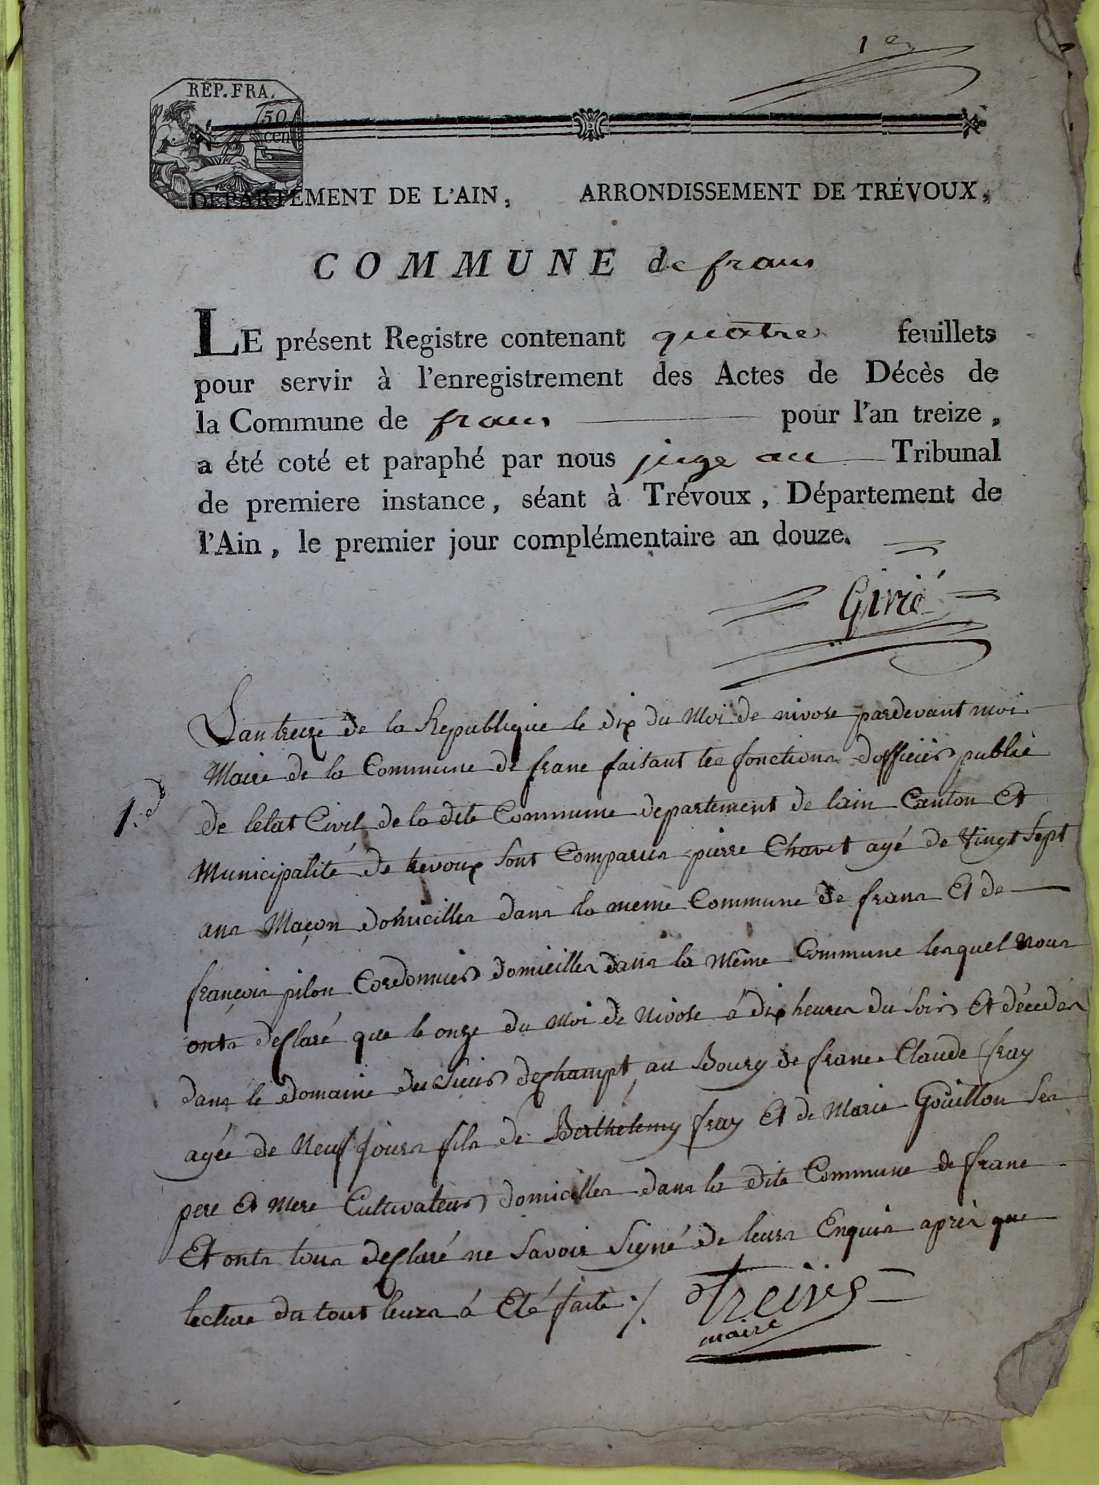 1er
REP. FRA.
50
cent
DÉPARTEMENT DE L'AIN, ARRONDISSEMENT DE TRÉVOUX,
COMMUNE de frans
LE présent Registre contenant quatre feuillets
pour servir à l'enregistrement des Actes de Décès de
la Commune de frans pour l'an treize,
a été coté et paraphé par nous juge au Tribunal
de premiere instance, séant à Trévoux, Département de
l'Ain, le premier jour complémentaire an douze.
Girié
Lan treize de la Republique le dix du Moï de nivose pardevant moi
Maire de la Commune de frans faisant les fonctions dofficier publié
1.d
de letat Civil de la dite Commune departement de lain Canton Et
Municipalité de trevoux sont Comparus pierre Chavet agé de Vingt sept
ans Maçon domicilles dans la meme Commune de frans Et de
françois pilon Cordonnier domicilles dans la Même Commune lesquel nous
onts desclaré que le onze du Moi de Nivose à dix heures du soir Et décedés
dans le domaine du sieur deschampt, au Bourg de frans Claude fray
agée de Neuf Jours fils de Berthelemy fray Et de Marie Goüillon ses
pere Et Mere Cultivateurs domicilles dans la dite Commune de frans
Et onts tous desclaré ne savoir signé de leurs Enquis après que
lecture du tout leurs à Eté faite ./.
maire